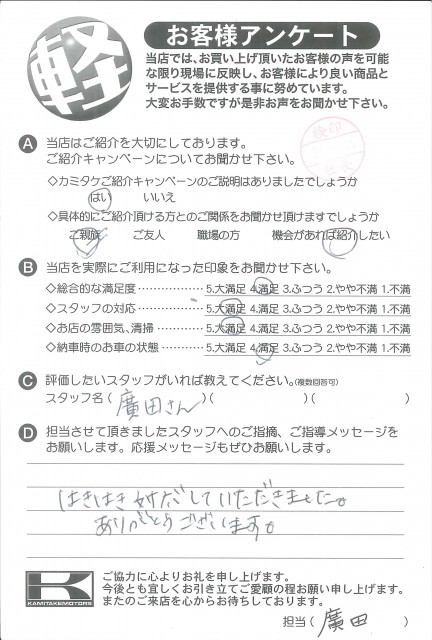 軽
お客様アンケート
当店では、お買い上げ頂いたお客様の声を可能
な限り現場に反映し、お客様により良い商品と
サービスを提供する事に努めています。
大変お手数ですが是非お声をお聞かせ下さい。
検印
A 当店はご紹介を大切にしております。
ご紹介キャンペーンについてお聞かせ下さい。
◇カミタケご紹介キャンペーンのご説明はありましたでしょうか
はい いいえ
◇具体的にご紹介頂ける方とのご関係をお聞かせ頂けますでしょうか
ご親族 ご友人 職場の方 機会があれば紹介したい
B 当店を実際にご利用になった印象をお聞かせ下さい。
◇総合的な満足度……………5.大満足 4.満足 3.ふつう 2.やや不満 1.不満
◇スタッフの対応……………5.大満足 4.満足 3.ふつう 2.やや不満 1.不満
◇お店の雰囲気、清掃………5.大満足 4.満足 3.ふつう 2.やや不満 1.不満
◇納車時のお車の状態………5.大満足 4.満足 3.ふつう 2.やや不満 1.不満
C 評価したいスタッフがいれば教えてください。(複数回答可)
スタッフ名(廣田さん)( )( )
D 担当させて頂きましたスタッフへのご指摘、ご指導メッセージを
お願いします。応援メッセージもぜひお願いします。
はきはき対応していただきました。
ありがとうございます。
K
KAMITAKEMOTORS
ご協力に心よりお礼を申し上げます。
今後とも宜しくお引き立てご愛顧の程お願い申し上げます。
またのご来店を心からお待ちしております。
担当(廣田)